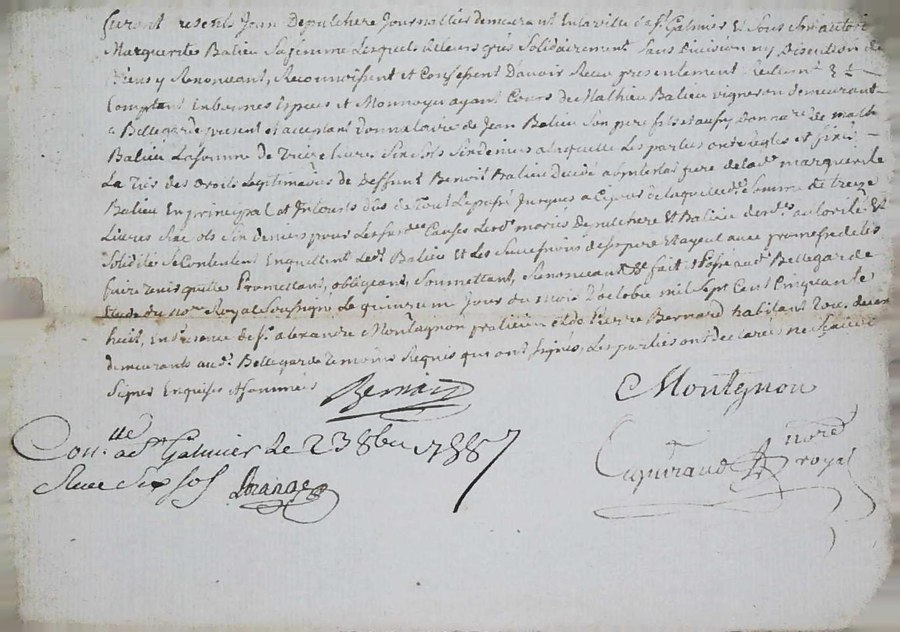 furent resents Jean Depulchere Journallier demeurant En la ville de st Galmier Et Sous Son autorité
Marguerites Balieu Sa femme Lesquels de leurs grés Solidairement Sans Division ny Discution de
biens y Renonceant, Reconnoissent et Confessent D'avoir Receu presentement
Comptant En bonnes Especes et Monnoyes ayant Cours de Mathieu Balieu vigneron demeurant
a Bellegarde present et acceptant Donnataire de Jean Balieu Son pere fils et aussy Donnare de math
Balieu La somme de treize livres Six Sols Six deniers a laquelle Les parties ont réglés et finis
La des droits Legitimaires de Deffunt Benoit Balieu décédé frere de lad. marguerite
Balieu En principal et Interets dûs de Tout Le passé Jusques a Ce jour de laquelle de. Somme de treize
Livres Six sols Six deniers pour Les susdes Causes Lesd. mariés Depulchere et Balieu de des. autorité Et
Solidité Se Contentent En quittent Led. Balieu et Les Successeurs de Son pere et ayeul avec promesse de Les
faire tenir quitte Promettant, obligeant, Soumettant, Renonceant &. fait et Passé aud. Bellegarde
Etude du nore Royal Soussigné Le quinzieme jour du mois D'octobre mil Sept Cent Cinquante
huit, En presence de Sr. alexandre Montagnon praticien et de Pierre Bernard habitant
demeurants aud. Bellegarde temoins Requis qui ont signés, Les parties ont declarés ne Sçavoir
Signer Enquises et Sommées
Bernard Montagnon
Con.lle a St Galmier Le 23 8bre 1758
Receu Six sols Lorange
Cuguiraud nore royal